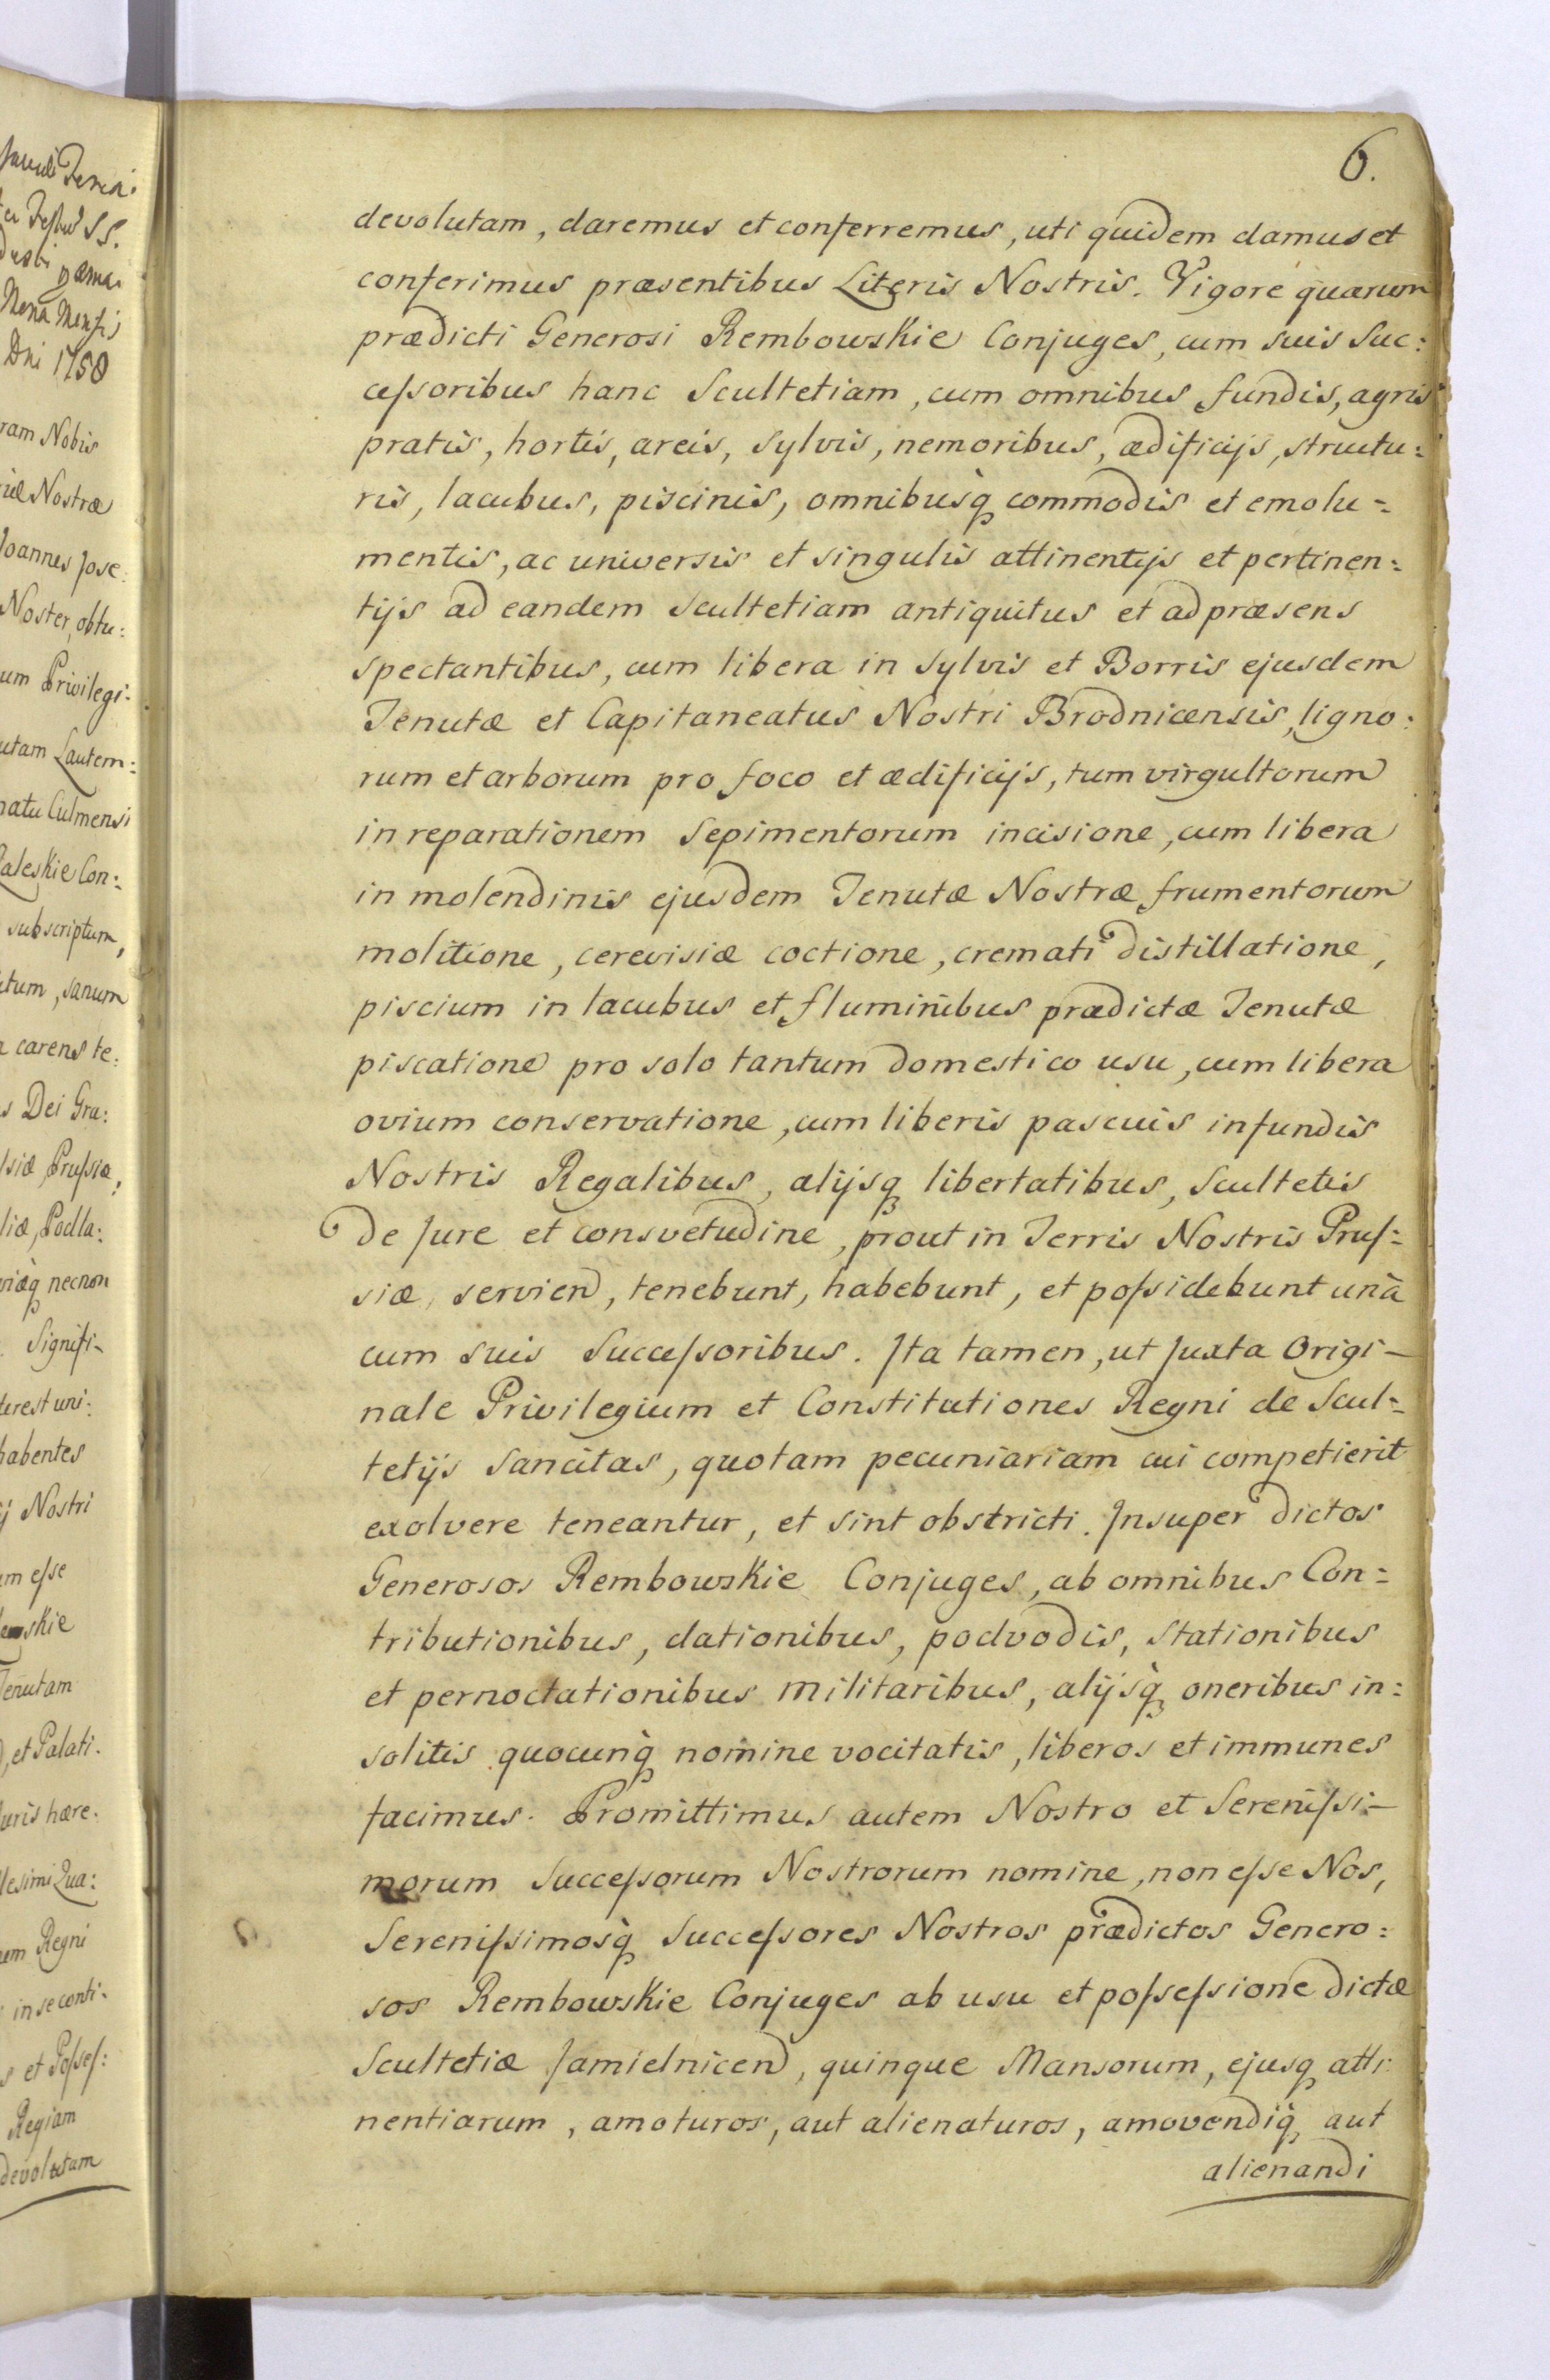 Dni 1758
ram Nobis
Nostræ
Joannes Jose:
Noster, obtu:
um Privilegi-
utam Lautem:
natu Culmensi
Con:
subscriptum,
tum, sanum
carens te:
s Dei Gra:
siæ Prussiæ,
liæ, Podla:
necnon
Signifi-
terest uni:
habentes
Nostri
um esse
skie
Tenutam
et Palati.
uris hære.
lesimi Qua:
em Regni
in se conti-
s et Posses:
Regiam
devolutam
6.
devolutam, daremus et conferremus, uti quidem damus et
conferimus præsentibus Literis Nostris. Vigore quarum
prædicti Generosi Rembowskie Conjuges, cum suis Suc:
cessoribus hanc Scultetiam, cum omnibus fundis, agris
pratis, hortis, areis, sylvis, nemoribus, ædificijs, structu:
ris, lacubus, piscinis, omnibusq̀ commodis et emolu=
mentis, ac universis et singulis attinentijs et pertinen:
tijs ad eandem Scultetiam antiquitus et ad præsens
spectantibus, cum libera in sylvis et Borris ejusdem
Tenutæ et Capitaneatus Nostri Brodnicensis, ligno:
rum et arborum pro foco et ædificijs, tum virgultorum
in reparationem Sepimentorum incisione, cum libera
in molendinis ejusdem Tenutæ Nostræ frumentorum
molitione, cerevisiæ coctione, cremati distillatione,
piscium in lacubus et fluminibus prædictæ Tenutæ
piscatione pro solo tantum domestico usu, cum libera
ovium conservatione, cum liberis pascuis in fundis
Nostris Regalibus, alijsq libertatibus, Scultetis
de Jure et consvetudine, prout in Terris Nostris Prus:
siæ, servien, tenebunt, habebunt, et possidebunt unà
cum suis Successoribus. Ita tamen, ut juxta Origi-
nale Privilegium et Constitutiones Regni de Scul=
tetijs Sancitas, quotam pecuniariam cui competierit
exolvere teneantur, et sint obstricti. Insuper dictos
Generosos Rembowskie Conjuges, ab omnibus Con:
tributionibus, dationibus, podvodis, stationibus
et pernoctationibus militaribus, alijsq̀ oneribus in:
solitis quocunq̀ nomine vocitatis, liberos et immunes
facimus. Promittimus autem Nostro et Serenissi-
morum Successorum Nostrorum nomine, non esse Nos,
Serenissimosq̀ Successores Nostros prædictos Genero:
sos Rembowskie Conjuges ab usu et possessione dictæ
Scultetiæ Jamielnicen, quinque Mansorum, ejusq atti
nentiarum, amoturos, aut alienaturos, amovendiq̀ aut
alienandi